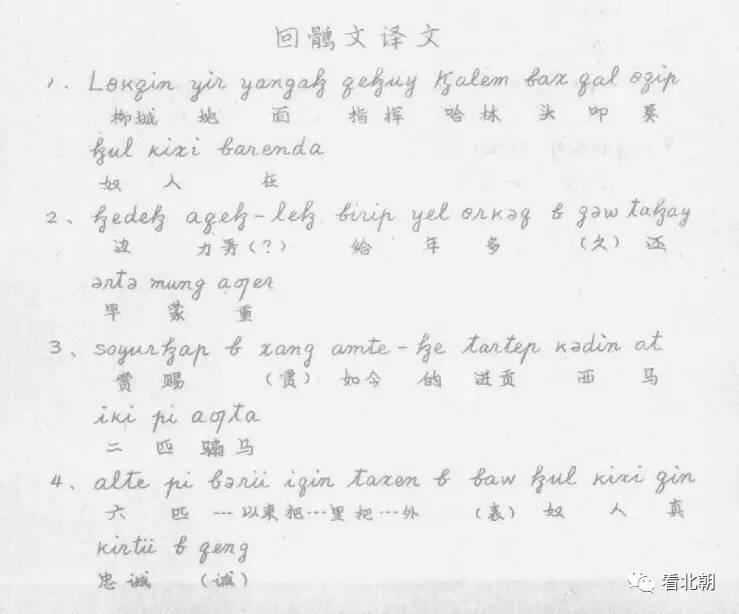 回鹘文译文
1. Løkqin yir yangaⱪ qeⱪuy Ⱪalem bax qal øgip
柳城 地 面 指挥 哈林 头 叩 
ⱪul kixi barenda
奴 人 在
2、 ⱪedeⱪ aqeⱪ-leⱪ birip yel ørkəq b gəw taⱪay
边 力哥(?) 给 年 多 (久) 还
ərtə mung aƣer
早 蒙 重
3、 soyurⱪap b xang amte-ⱪe tartep kədin at
赏 赐 (赏) 如今 的 进贡 西 马
iki pi aƣta
二 匹 骟马
4、 alte pi bərii iqin taxen b baw ⱪul kixi qin
六 匹 …以来把…里把…外 (表) 奴 人 真
kirtü b qeng
忠诚 (诚)
看北朝